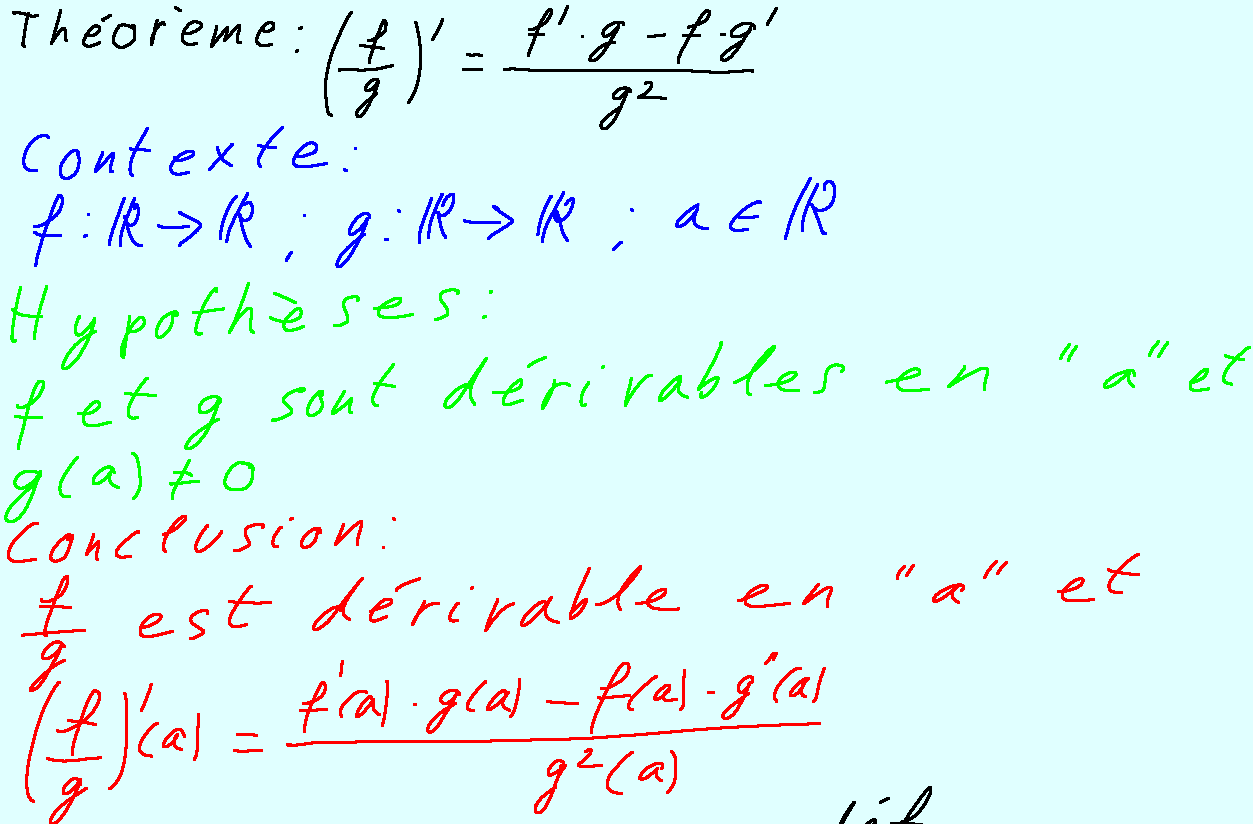 Théorème: (f/g)' = (f'·g - f·g')/g²
Contexte:
f: ℝ → ℝ ; g: ℝ → ℝ ; a ∈ ℝ
Hypothèses:
f et g sont dérivables en "a" et
g(a) ≠ 0
Conclusion:
f/g est dérivable en "a" et
(f/g)'(a) = (f'(a)·g(a) - f(a)·g'(a))/g²(a)